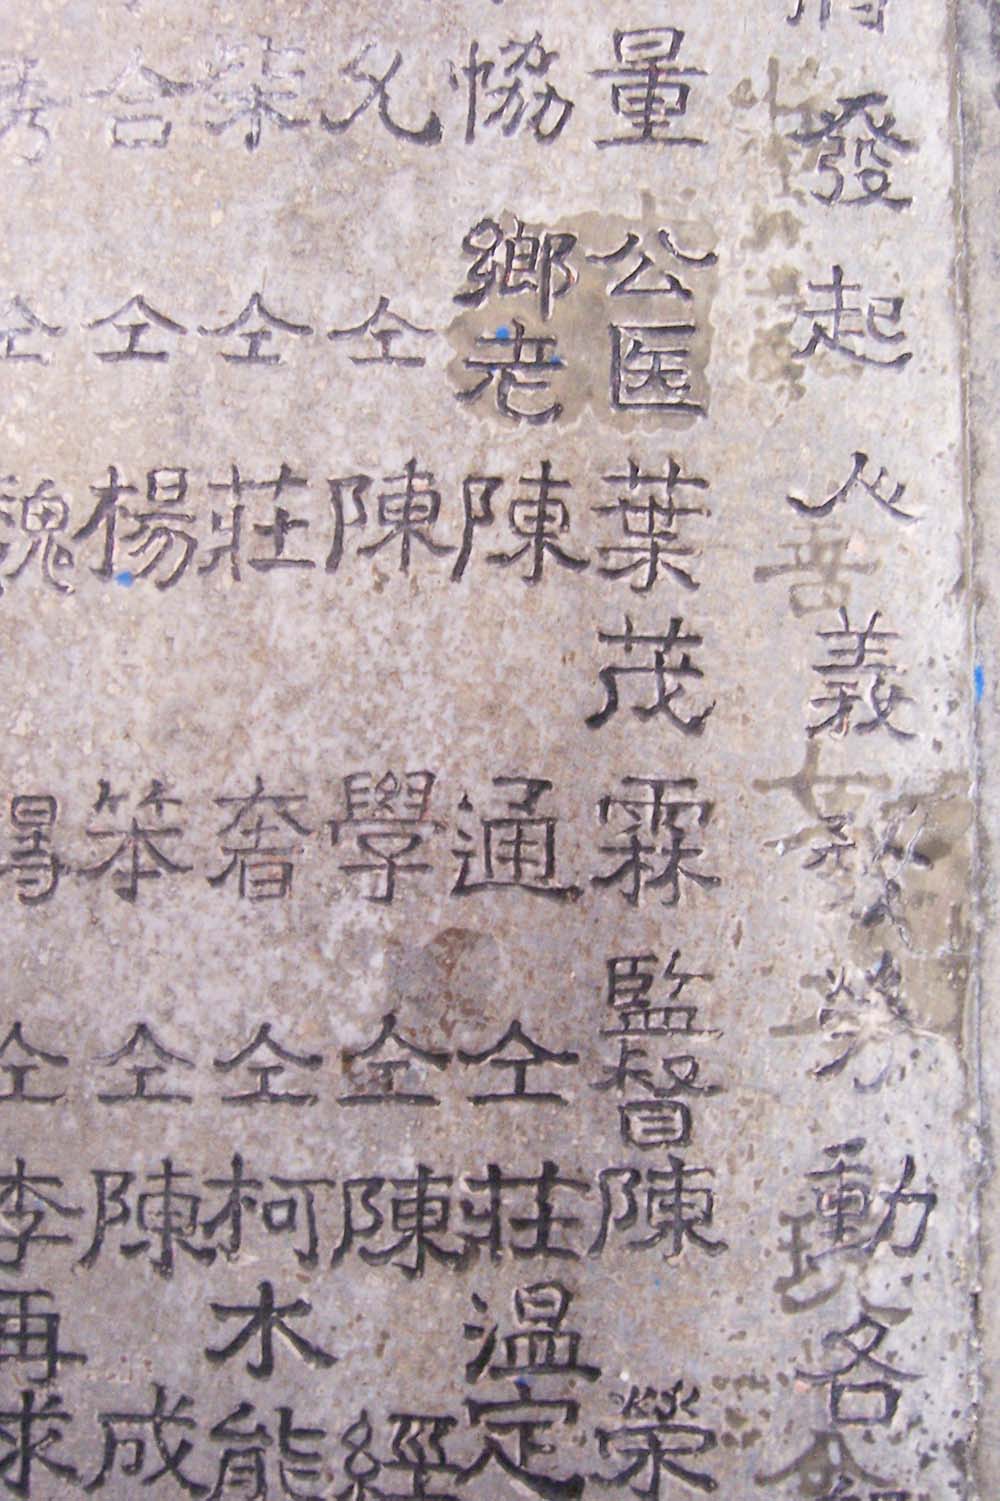 發起人義務勞動各
量公医葉茂霖監督陳榮
協鄉老陳通仝莊温定
允仝陳學仝陳經
柒仝莊奢仝柯木能
合仝楊笨仝陳成
仝魏得仝李再求